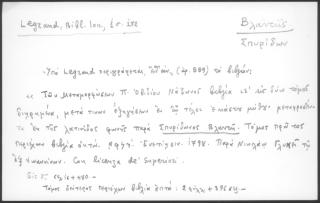 Legrand, Bibl. Ion., 
Βλαντῆς
Σπυρίδων
Ὑπὸ Legrand περιγράφεται, (ἀρ. 889) τὸ βιβλίον:
« Τῶν Μεταμορφώσεων Π. Ὀβιδίου Νάσωνος βιβλία ιε' εἰς δύω τόμους
διῃρημένα, μετά τινων ἐξηγήσεων ἐν τῷ τέλει ἑκάστου μύθου μεταφρασθέντα
ἐκ τῆς λατινίδος φωνῆς παρὰ Σπυρίδωνος Βλαντῆ. Τόμος πρῶτος
περιέχων βιβλία ὀκτώ. Ἐνετίησιν. 1798. Παρὰ Νικολάῳ Γλυκεῖ τῷ
ἐξ Ἰωαννίνων. Con licenza de' Superiori.
Τόμος δεύτερος περιέχων βιβλία ἑπτά: 2 φύλλ. + 396 σελ.